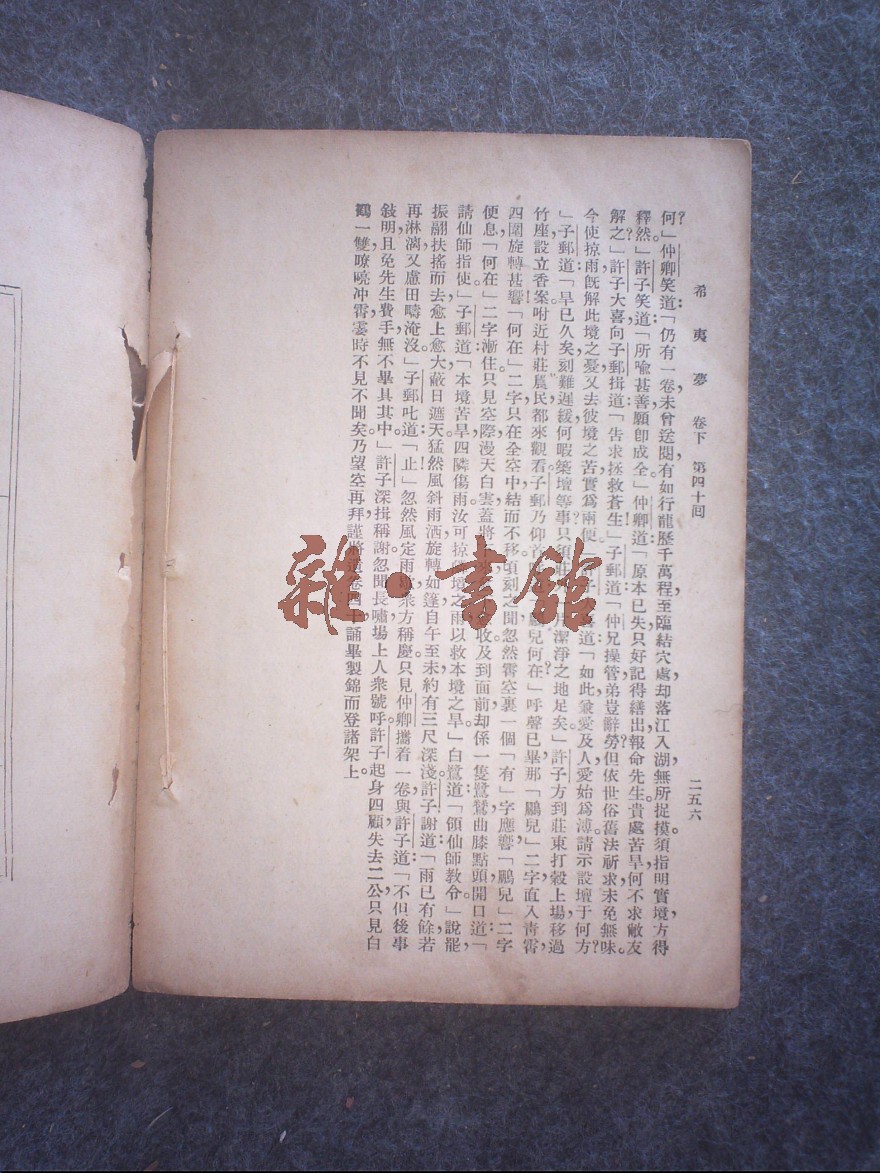 希夷夢 卷下 第四十回 二五六
何？」仲卿笑道：「仍有一卷，未曾送閱，有如行龍歷千萬程，至臨結穴處，却落江入湖，無所捉摸。須指明實境，方得
釋然。」許子笑道：「所喩甚善，願卽成全。」仲卿道：「原本已失，只好記得繕出報命。先生貴處苦旱，何不求敝友
解之？」許子大喜，向子郵揖道：「告求拯救蒼生！」子郵道：「仲兄操管，弟豈辭勞？但依世俗舊法祈求，未免無味。
今使掠雨，旣解此境之憂，又去彼境之苦，實爲兩便。」道：「如此兼愛及人，愛始爲溥。請示設壇于何方？
」子郵道：「旱已久矣，刻難遲緩，何暇築壇等事？只須潔淨之地足矣。」許子方到莊東打穀上場，移過
竹座，設立香案。附近村莊農民，都來觀看。子郵乃仰鷳兒何在？」呼聲已畢，那「鷳兒」二字直入青霄，
四圍旋轉甚響！「何在」二字只在全空中結而不移。頃刻之間，忽然霄空裏一個「有」字應響，「鷳兒」二字
便息，「何在」二字漸住。只見空際漫天白雲蓋將收及到面前，却係一隻鷺鷥，曲膝點頭，開口道：「
請仙師指使。」子郵道：「本境苦旱，四隣傷雨，汝可掠隣境之雨，以救本境之旱。」白鷺道：「領仙師敎令。」說罷，
振翮扶搖而去，愈上愈大，蔽日遮天，猛然風斜雨洒，旋轉如篷，自午至未，約有三尺深淺。許子謝道：「雨已有餘，若
再淋漓，又慮田疇淹沒。」子郵叱道：「止！」忽然風定雨衆方稱慶，只見仲卿攜着一卷與許子道：「不但後事
敍明，且免先生費手，無不畢具其中。」許子深揖稱謝。忽聞長嘯，場上人衆號呼，許子起身四顧，失去二公，只見白
鶴一雙，嘹喨冲霄，霎時不見不聞矣。乃望空再拜，謹將卷四十誦畢，製錦而登諸架上。
雜·書館